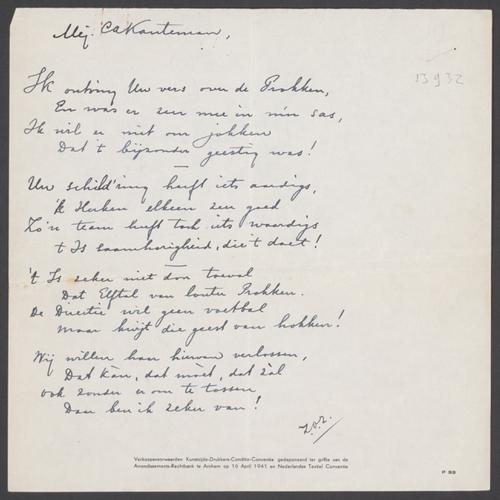 Mej. CAKanteman,
13932
Ik ontving Uw vers over de Prokken,
En was er zeer mee in m'n sas,
Ik wil er niet om jokken
Dat 't bijzonder geestig was!
Uw schild'ring heeft iets aardigs,
'k Herken elkeen zeer goed
Zo'n team heeft toch iets waardigs
't Is saamhorigheid, die 't doet!
't Is zeker niet door toeval
Dat Elftal van louter Prokken.
De Directie wil geen voetbal
maar krijgt die geest van hokken!
Wij willen haar hiervan verlossen,
Dat kàn, dat mòet, dat zàl
ook zonder er om te tossen
Daar ben ik zeker van!
Verkoopsvoorwaarden Kunstzijde-Drukkers-Conditie-Conventie gedeponeerd ter griffie van de
Arrondissements-Rechtbank te Arnhem op 16 April 1941 en Nederlandse Textiel Conventie
P 99